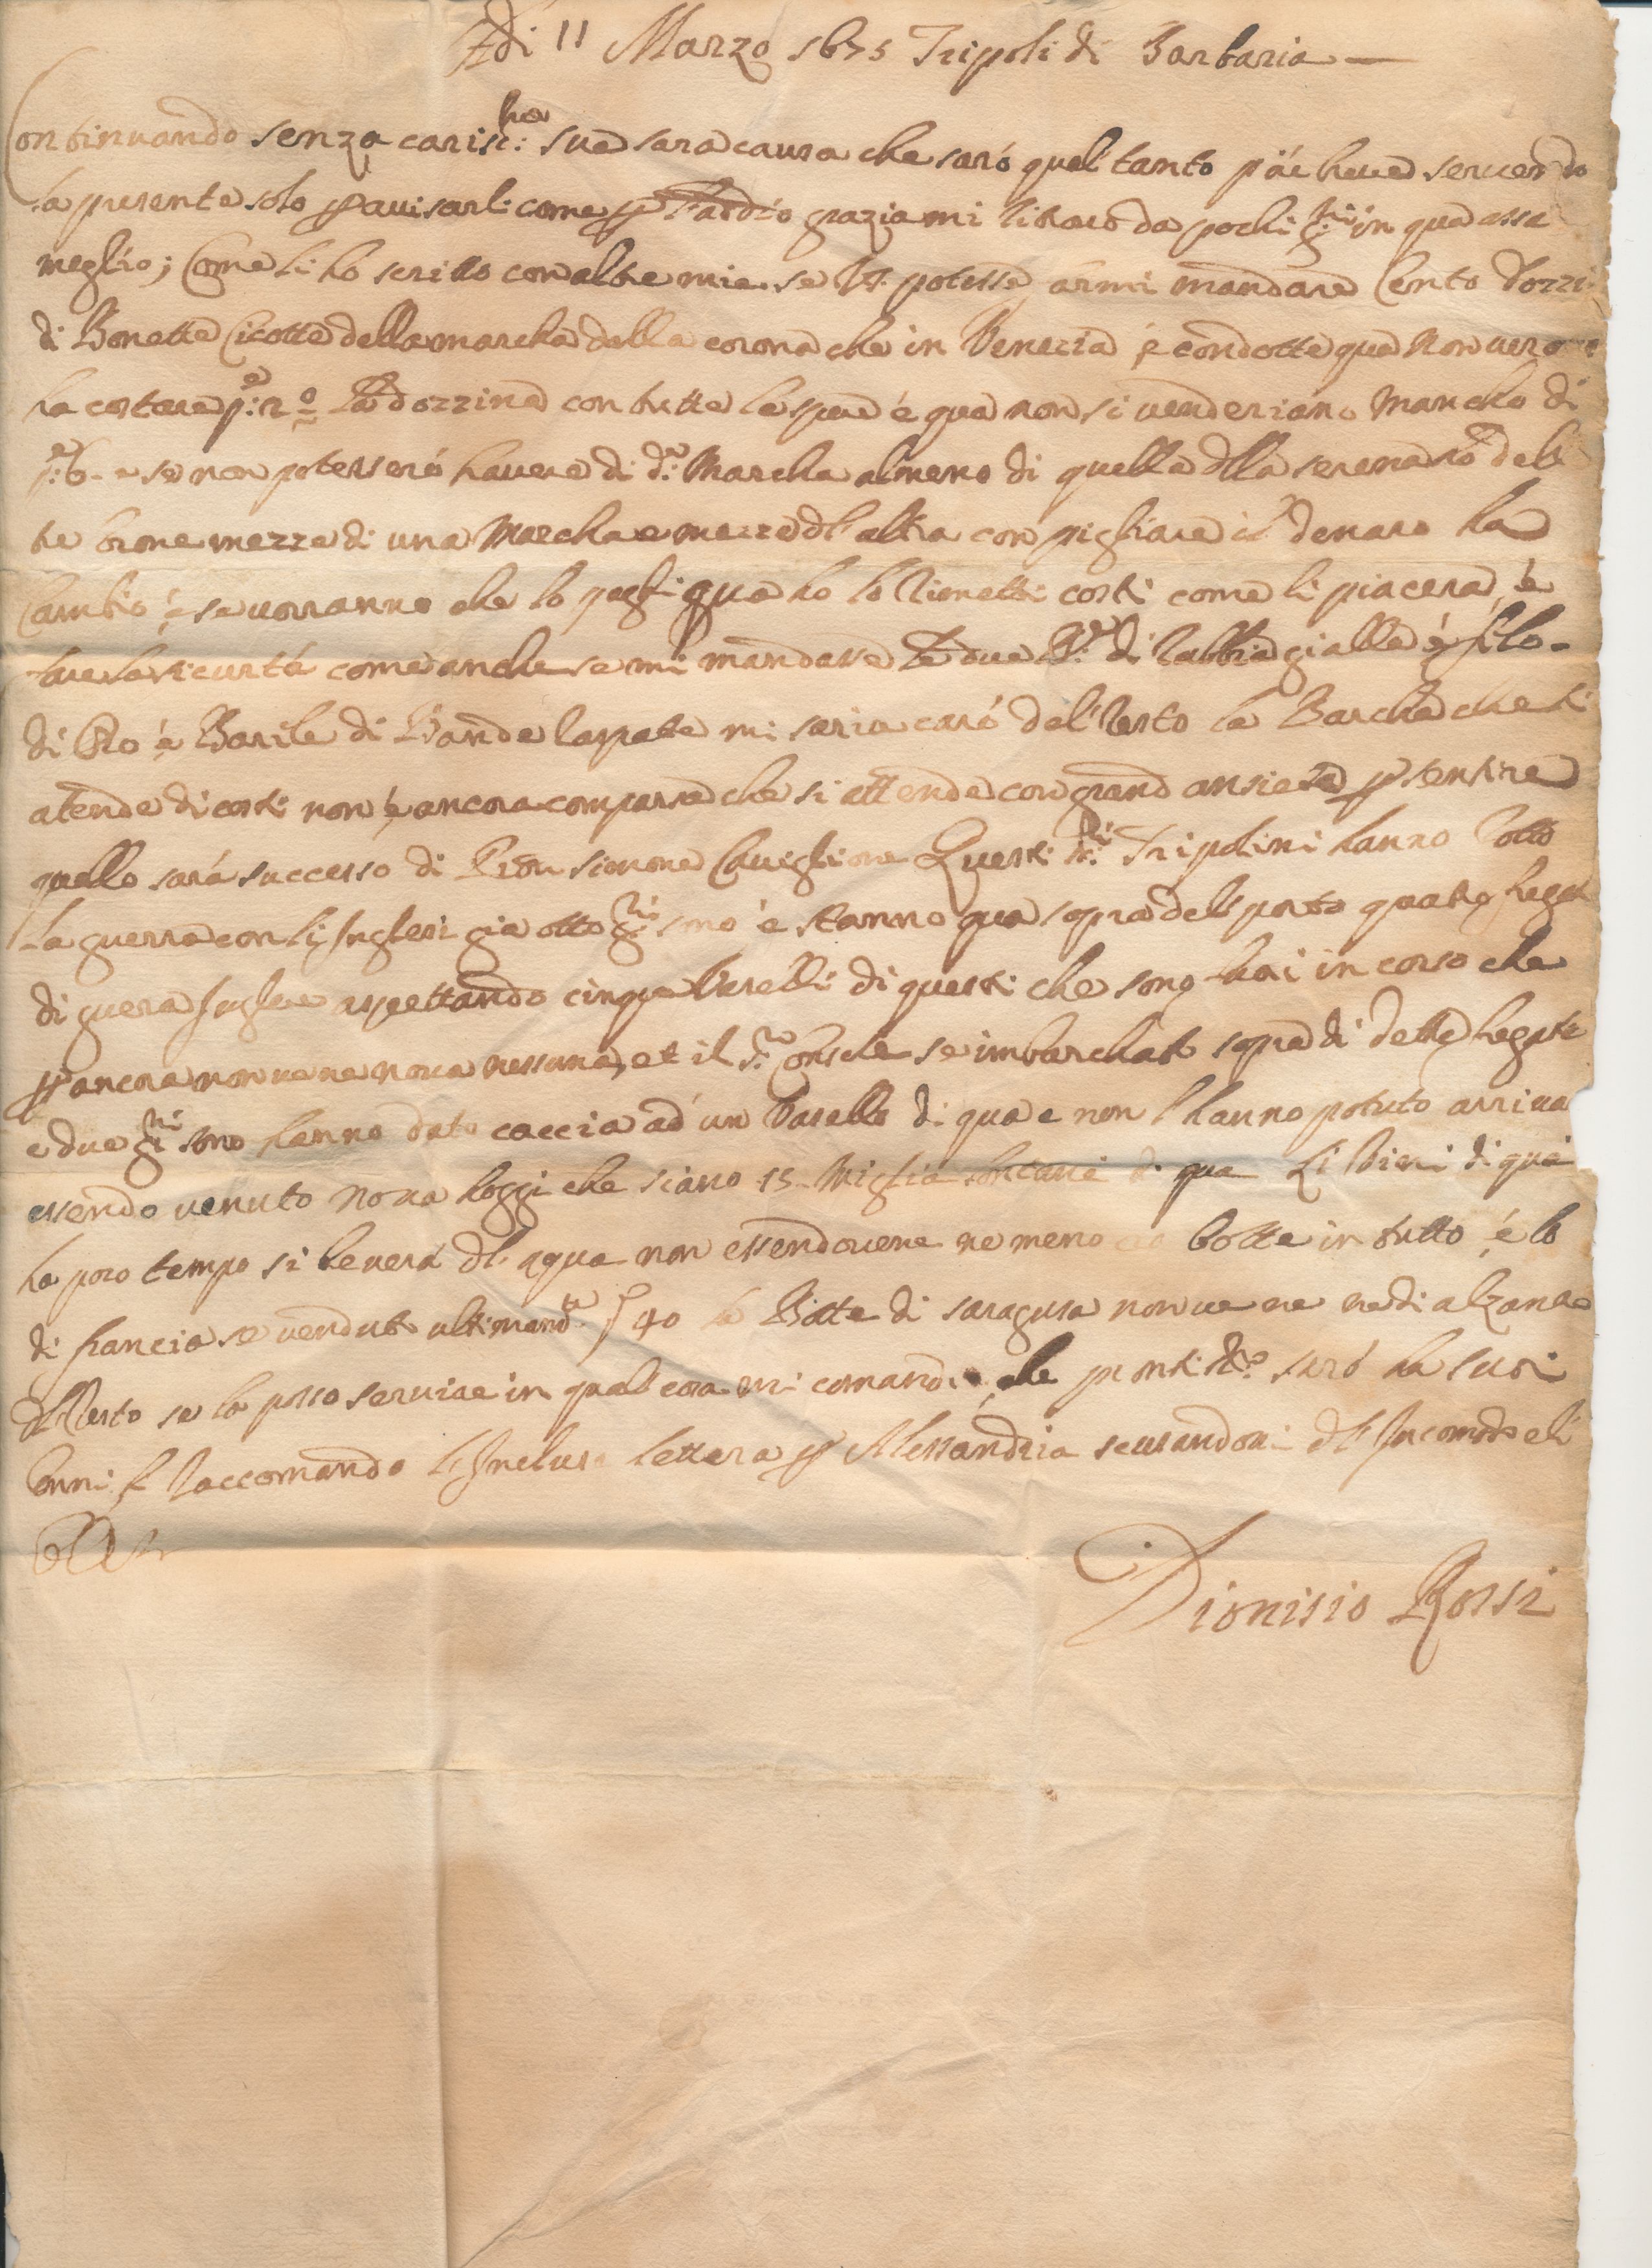 Adi 11 Marzo 1675 Tripoli di Barbaria
Continuando senza cariss:me sue sara causa che saró quel tanto piú breve servendo
la presente solo p avisarli come p Iddio grazia mi ritrovo da pochi g:ni in qua assa
meglio; Come li ho scritto con altre mie se VS. potesse mandare Cento dozzi
di Bonette Cicotte della marcha della corona che in Venezia é condotte qua non vero
ha costare p:e 2 La dozzina con tutte le spese é qua non si venderiano mancho di
p:e 6 - e se non potessero havere di d:a Marcha almeno di quella della serena
bone mezze di una Marcha e mezze dell altra con pigliare il denaro ha
Cambio é se vorranno che lo paghi qua ho lo rimetti costi come li piacera, é
la sicurtá come anche se mi mandasse le due di gialla é filo
di é Barile di Bande mi saria caró del resto la Barcha che si
atende di costi non é ancora comparsa che si attende con grand ansieta p sentire
quello sará successo di Simone Caviglione Questi Tripolini hanno rotto
La guerra con li Inglesi gia otto g:ni sono é stanno qua sopra del porto quatro fregat
di guera Inglese aspettando cinque Vaselli di questi che sono in corso che
p ancora non vene nova nessuna, et il S:r Console se imbarchato sopra di dette fregate
e due g:ni sono hanno dato caccia ad un Vasello di qua e non l hanno potuto arriva
essendo venuto nova hoggi che siano 15 Miglia lontane di qua Li Vini di qua
ha poco tempo si bevera del aqua non essendovene ne meno botte in tutto é lo
di francia se venduto ultimam:te p 40 la Botte di saragusa non ve ne ne di alzana
del Resto se la posso servire in qualc cosa mi comandi che saró ha suoi
Cenni, Raccomando l Inclusa lettera p Alessandria scusandomi del Incomodo eli

Dionisio Rossi